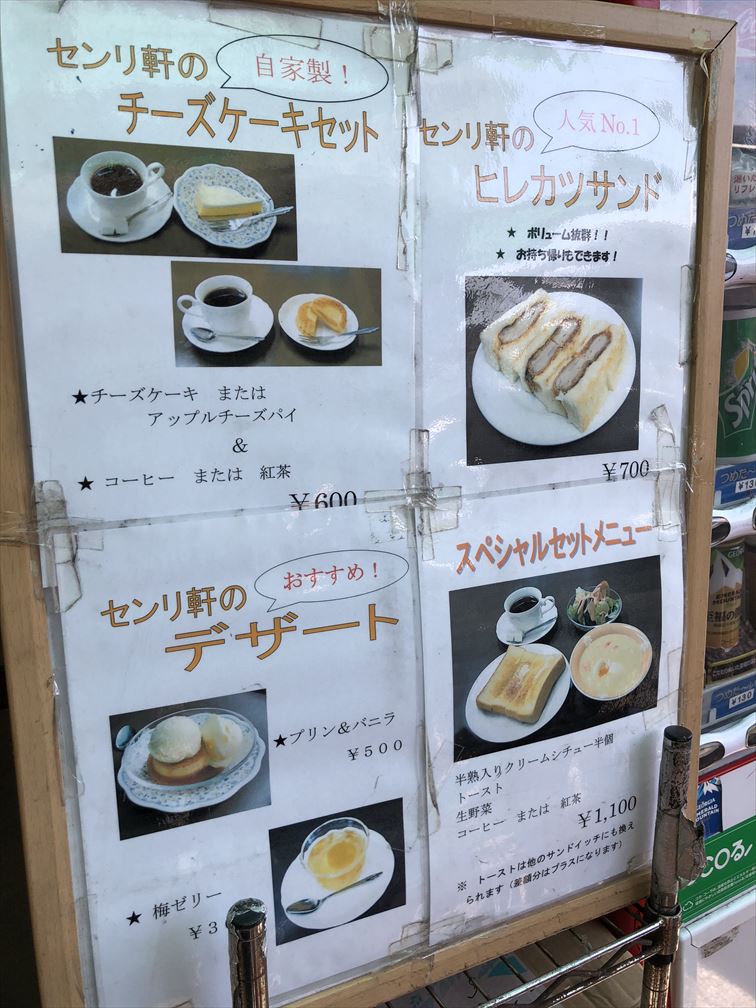 センリ軒の
自家製！
チーズケーキセット
★チーズケーキ または
アップルチーズパイ
＆
★ コーヒー または 紅茶
￥600
センリ軒の
人気No.1
ヒレカツサンド
★ ボリューム抜群！！
★ お持ち帰りもできます！
￥700
センリ軒の
おすすめ！
デザート
★プリン＆バニラ
￥５００
★ 梅ゼリー
￥３
スペシャルセットメニュー
半熟入りクリームシチュー半個
トースト
生野菜
コーヒー または 紅茶
￥1,100
※ トーストは他のサンドイッチにも換え
られます（差額分はプラスになります）
Sprite
つめた〜
￥130